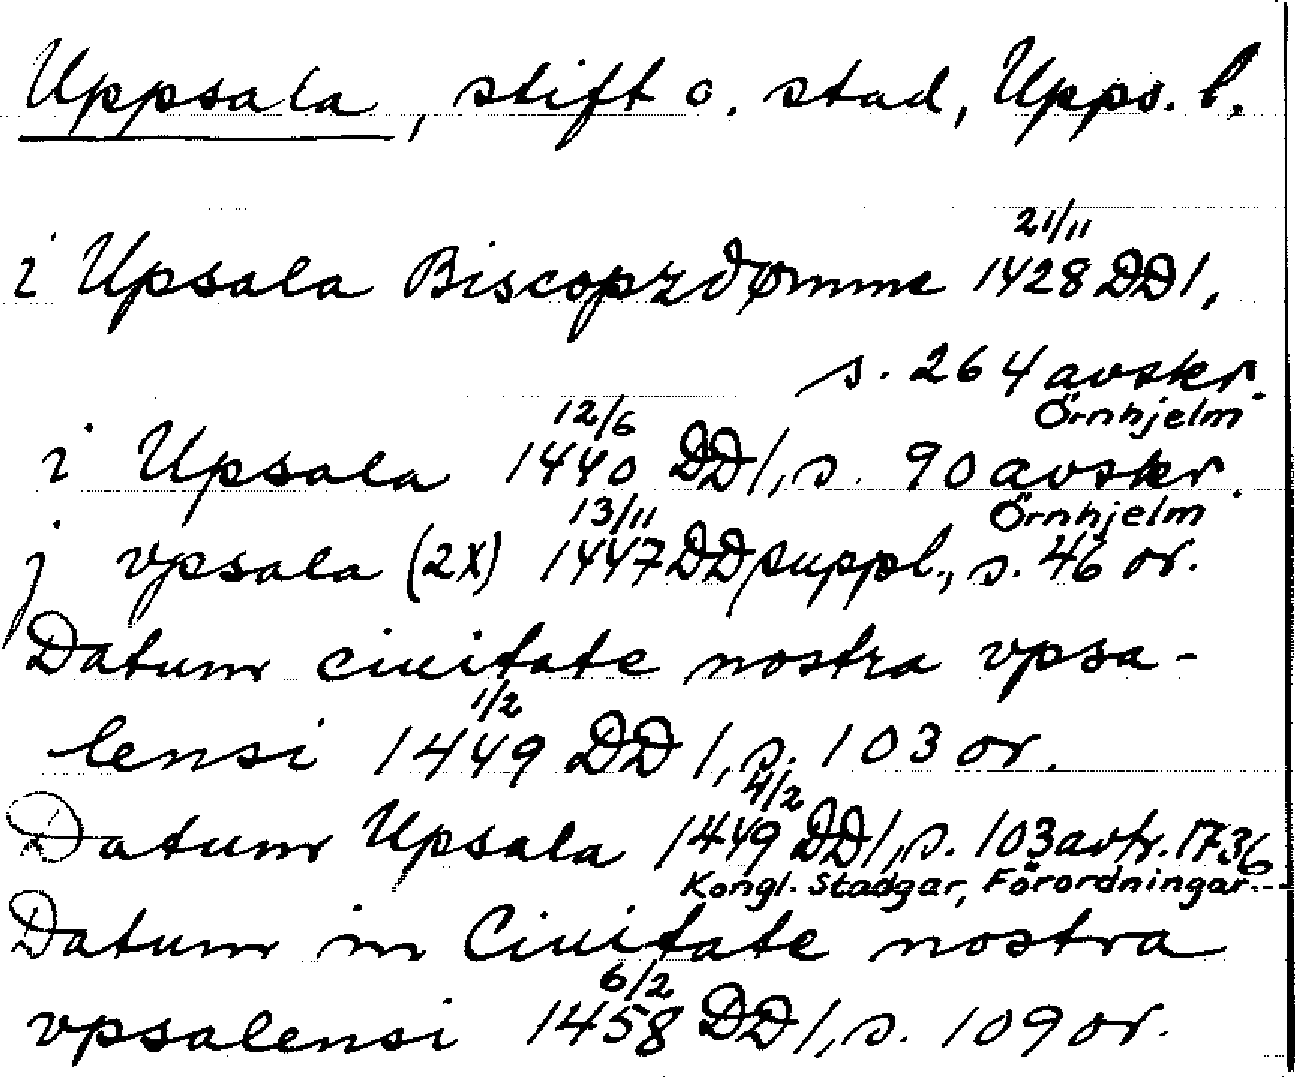 Uppsala, stift o. stad, Upps. l.
21/11
i Upsala Biscopzdømme 1428 DD 1,
s. 264 avskr.
Örnhjelm
12/6
i Upsala 1440 DD 1, s. 90 avskr.
Örnhjelm
13/11
j vpsala (2X) 1447 DD suppl., s. 46 or.
Datum ciuitate nostra vpsa-
1/2
lensi 1449 DD 1, s. 103 or.
4/2
Datum Upsala 1449 DD 1, s. 103 avtr. 1736
Kongl. Stadgar, Förordningar---
Datum in Ciuitate nostra
6/2
vpsalensi 1458 DD 1, s. 109 or.